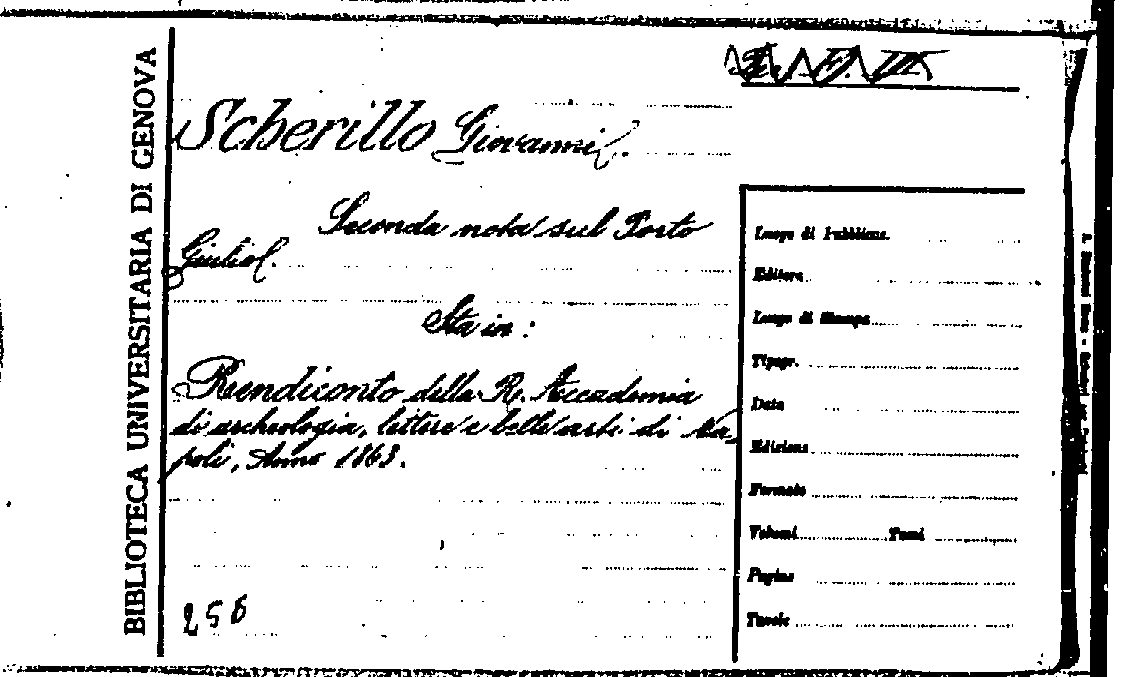 BIBLIOTECA UNIVERSITARIA DI GENOVA
Scherillo Giovanni.
Seconda nota sul Porto
Giulio.
Sta in:
Rendiconto della R. Accademia
di archeologia, lettere e belle arti di Na
poli, Anno 1863.
256
Luogo di Pubblicaz.
Editore
Luogo di Stampa
Tipogr.
Data
Edizione
Formato
Volumi Tomi
Pagine
Tavole